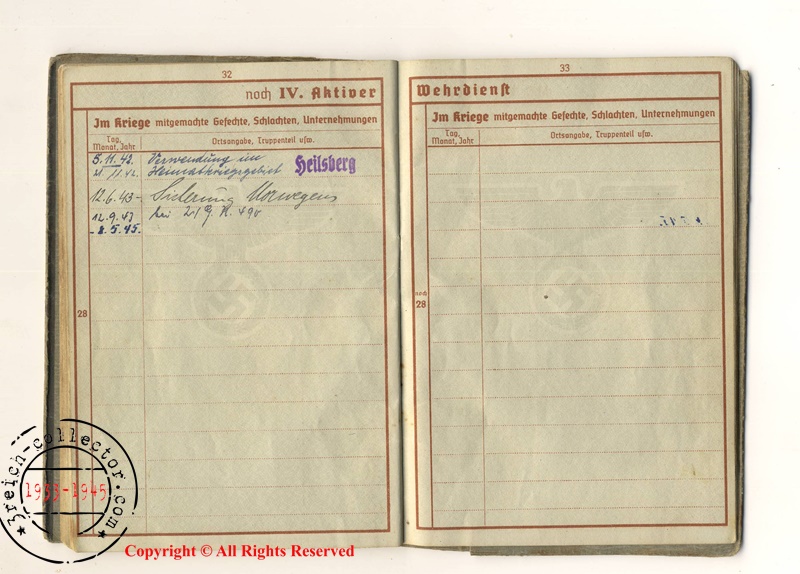 32
noch IV. Aktiver
Im Kriege mitgemachte Gefechte, Schlachten, Unternehmungen
Tag, Monat, Jahr
Ortsangabe, Truppenteil usw.
5.11.42. Verwendung im
21.11.42. Heimatkriegsgebiet Heilsberg
12.6.43- Sicherung Norwegens
12.9.43 bei
- 8.5.45.
28
33
Wehrdienst
Im Kriege mitgemachte Gefechte, Schlachten, Unternehmungen
Tag, Monat, Jahr
Ortsangabe, Truppenteil usw.
noch
28
3reich-collector.com
1933-1945
Copyright © All Rights Reserved